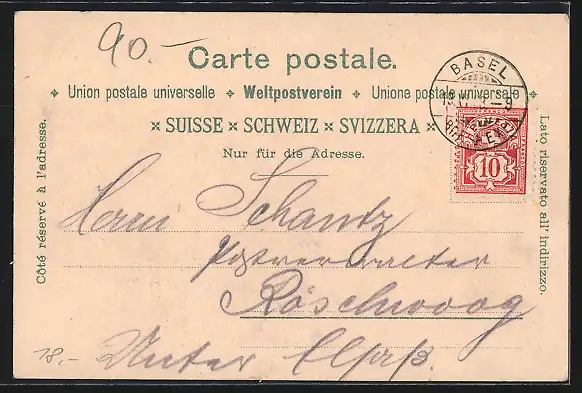 90.-
Carte postale.
Union postale universelle Weltpostverein Unione postale universale
SUISSE SCHWEIZ SVIZZERA
Nur für die Adresse.
Côté réservé à l'adresse.
Lato riservato all' indirizzo.
BASEL
10
Herrn Schantz
Postverwalter
Röschwoog
18.- Unter Elsaß.